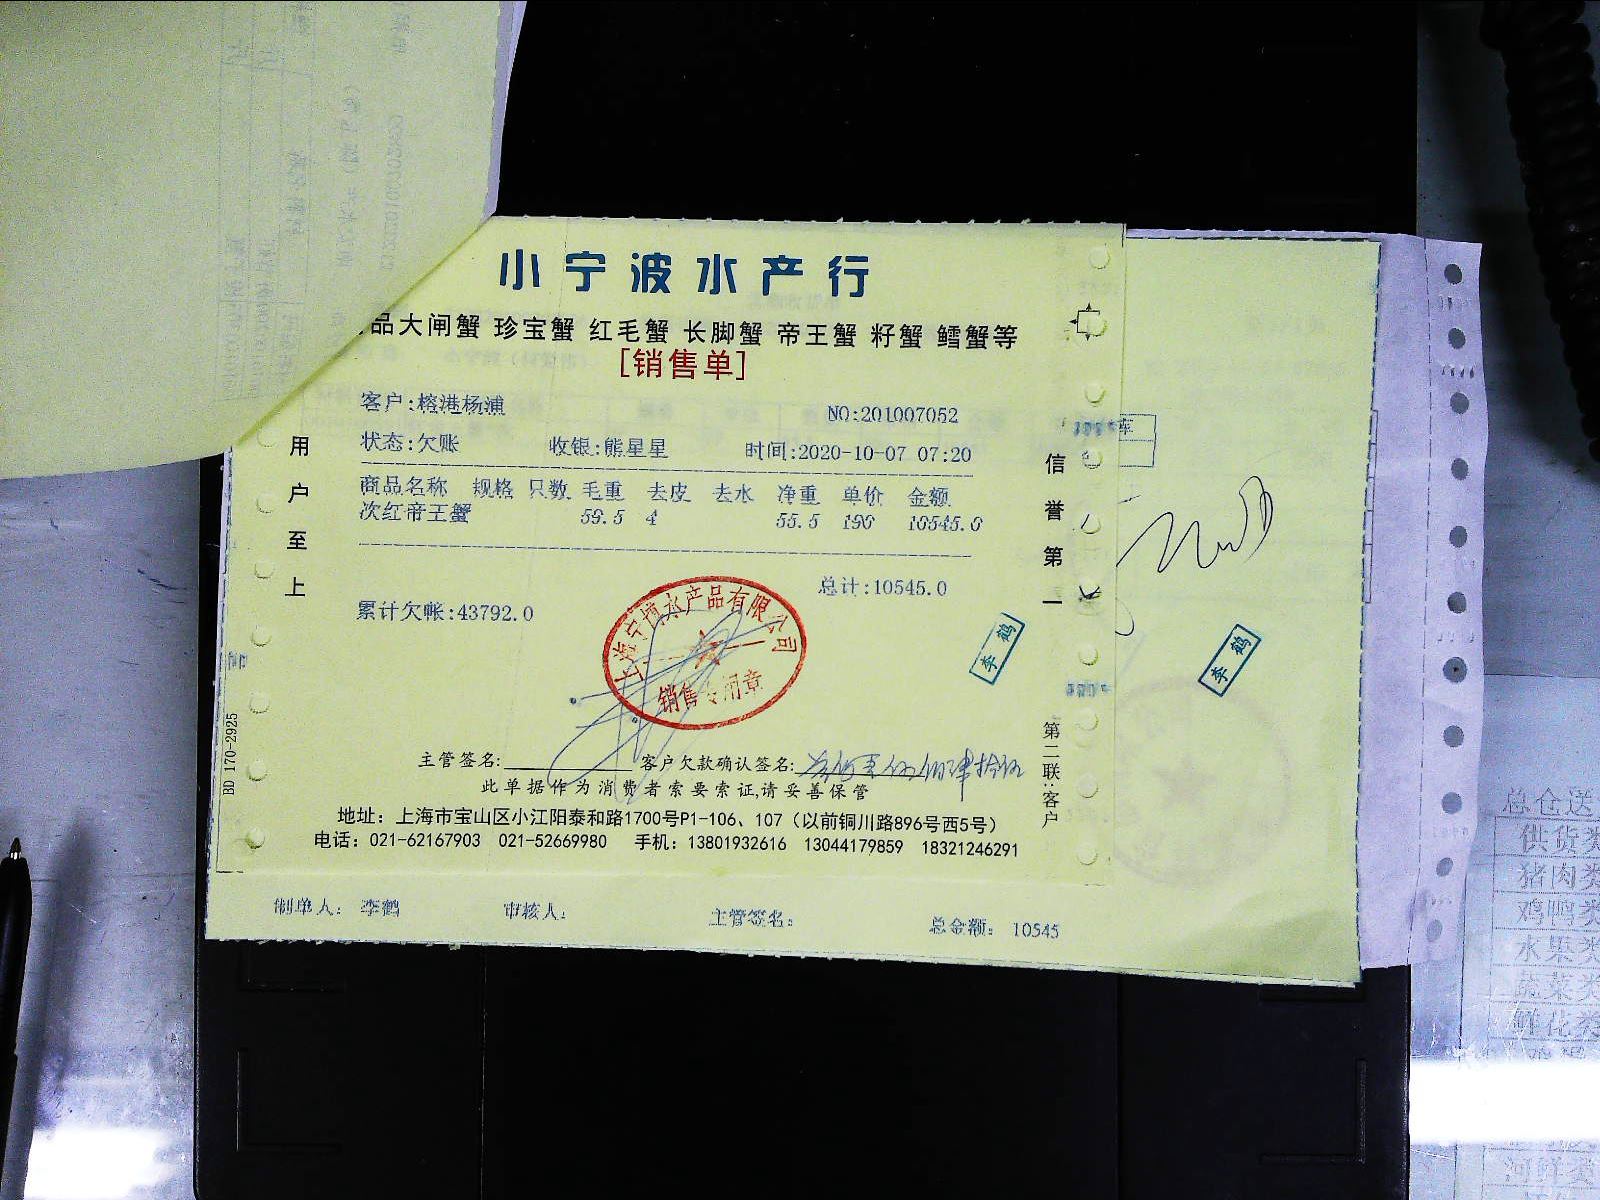 小宁波水产行
品大闸蟹 珍宝蟹 红毛蟹 长脚蟹 帝王蟹 籽蟹 鳕蟹等
[销售单]
客户:榕港杨浦 NO:201007052
状态:欠账 收银:熊星星 时间:2020-10-07 07:20
商品名称 规格 只数 毛重 去皮 去水 净重 单价 金额
次红帝王蟹 59.5 4 55.5 190 10545.0
总计:10545.0
累计欠帐:43792.0
用户至上
信誉第一
销售专用章
李鹤
李鹤
主管签名: 客户欠款确认签名:
此单据作为消费者索要索证,请妥善保管
地址：上海市宝山区小江阳泰和路1700号P1-106、107（以前铜川路896号西5号）
电话：021-62167903 021-52669980 手机：13801932616 13044179859 18321246291
BD 170-2925
第二联:客户
制单人：李鹤 审核人： 主管签名： 总金额：10545
车
总仓送
供货类
猪肉类
鸡鸭类
水果类
蔬菜类
鲜花类
河鲜类